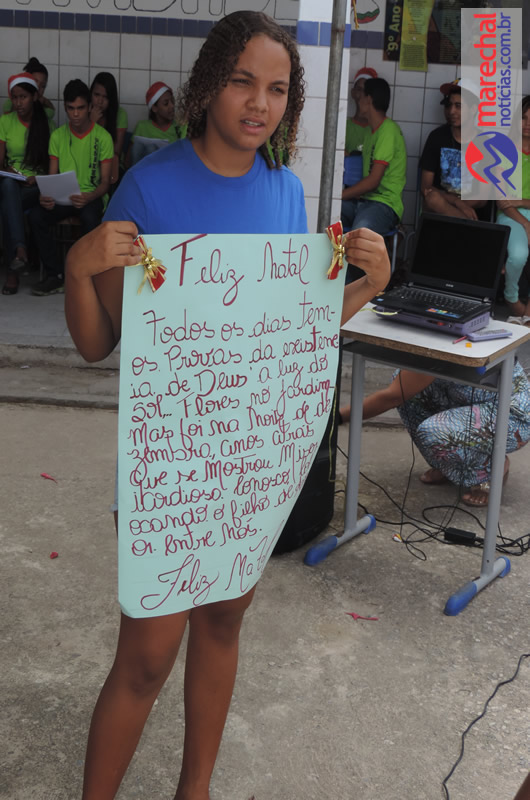 9º Ano
marechal
notícias.com.br
Feliz Natal
Todos os dias tem-
os Provas da existênc
ia de Deus a luz do
Sol_ Flores no jardim
Mas foi na noite de de
zembro, anos atrás
Que se Mostrou Miser
icordioso conosco
ocando o filho de
or. Entre Nós.
Feliz Na